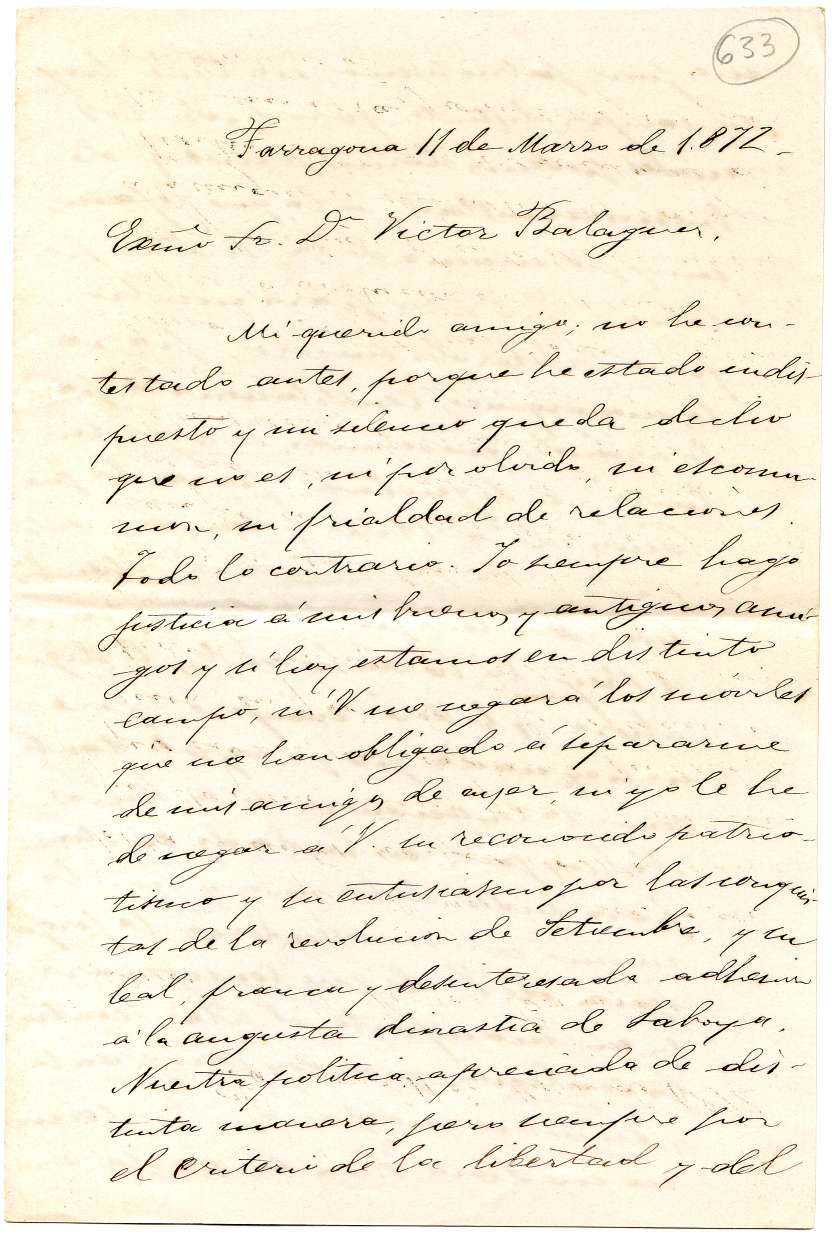 633
Tarragona 11 de Marzo de 1.872_
Exmo Sr. Dn Victor Balaguer,
Mi querido amigo; no he con-
testado antes, porque he estado indis-
puesto y mi silencio queda dicho
que no es, ni por olvido, ni escomu-
nion, ni frialdad de relaciones.
Todo lo contrario. Yo siempre hago
justicia á mis buenos y antiguos ami-
gos y si hoy estamos en distinto
campo, ni V. me negará los móviles
que me han obligado á separarme
de mis amigos de ayer, ni yo le he
de negar á V. su reconocido patrio-
tismo y su entusiasmo por las conquis-
tas de la revolucion de Setiembre, y su
leal, franca y desinteresada adhesion
á la augusta dinastia de Saboya.
Nuestra politica apreciada de dis-
tinta manera, pero siempre por
el criterio de la libertad y del